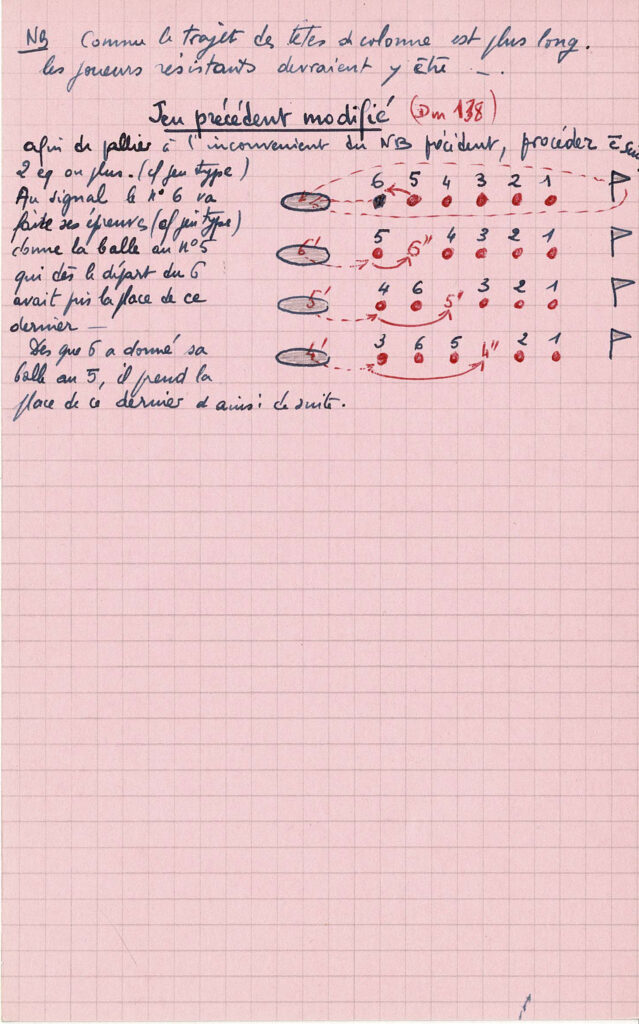 NB Comme le trajet des têtes de colonne est plus long.
les joueurs résistants devraient y être ...
Jeu précédent modifié (Dm 138)
afin de pallier à l'inconvenient du NB précédent, procéder
2 eq ou plus. (cf jeu type)
Au signal le n° 6 va
faire ses épreuves (cf jeu type)
donne la balle au n° 5
qui dès le départ du 6
avait pris la place de ce
dernier —
Dès que 6 a donné sa
balle au 5, il prend la
place de ce dernier et ainsi de suite.
6 5 4 3 2 1
6' 5 6'' 4 3 2 1
5' 4 6 5'' 3 2 1
4' 3 6 5 4'' 2 1